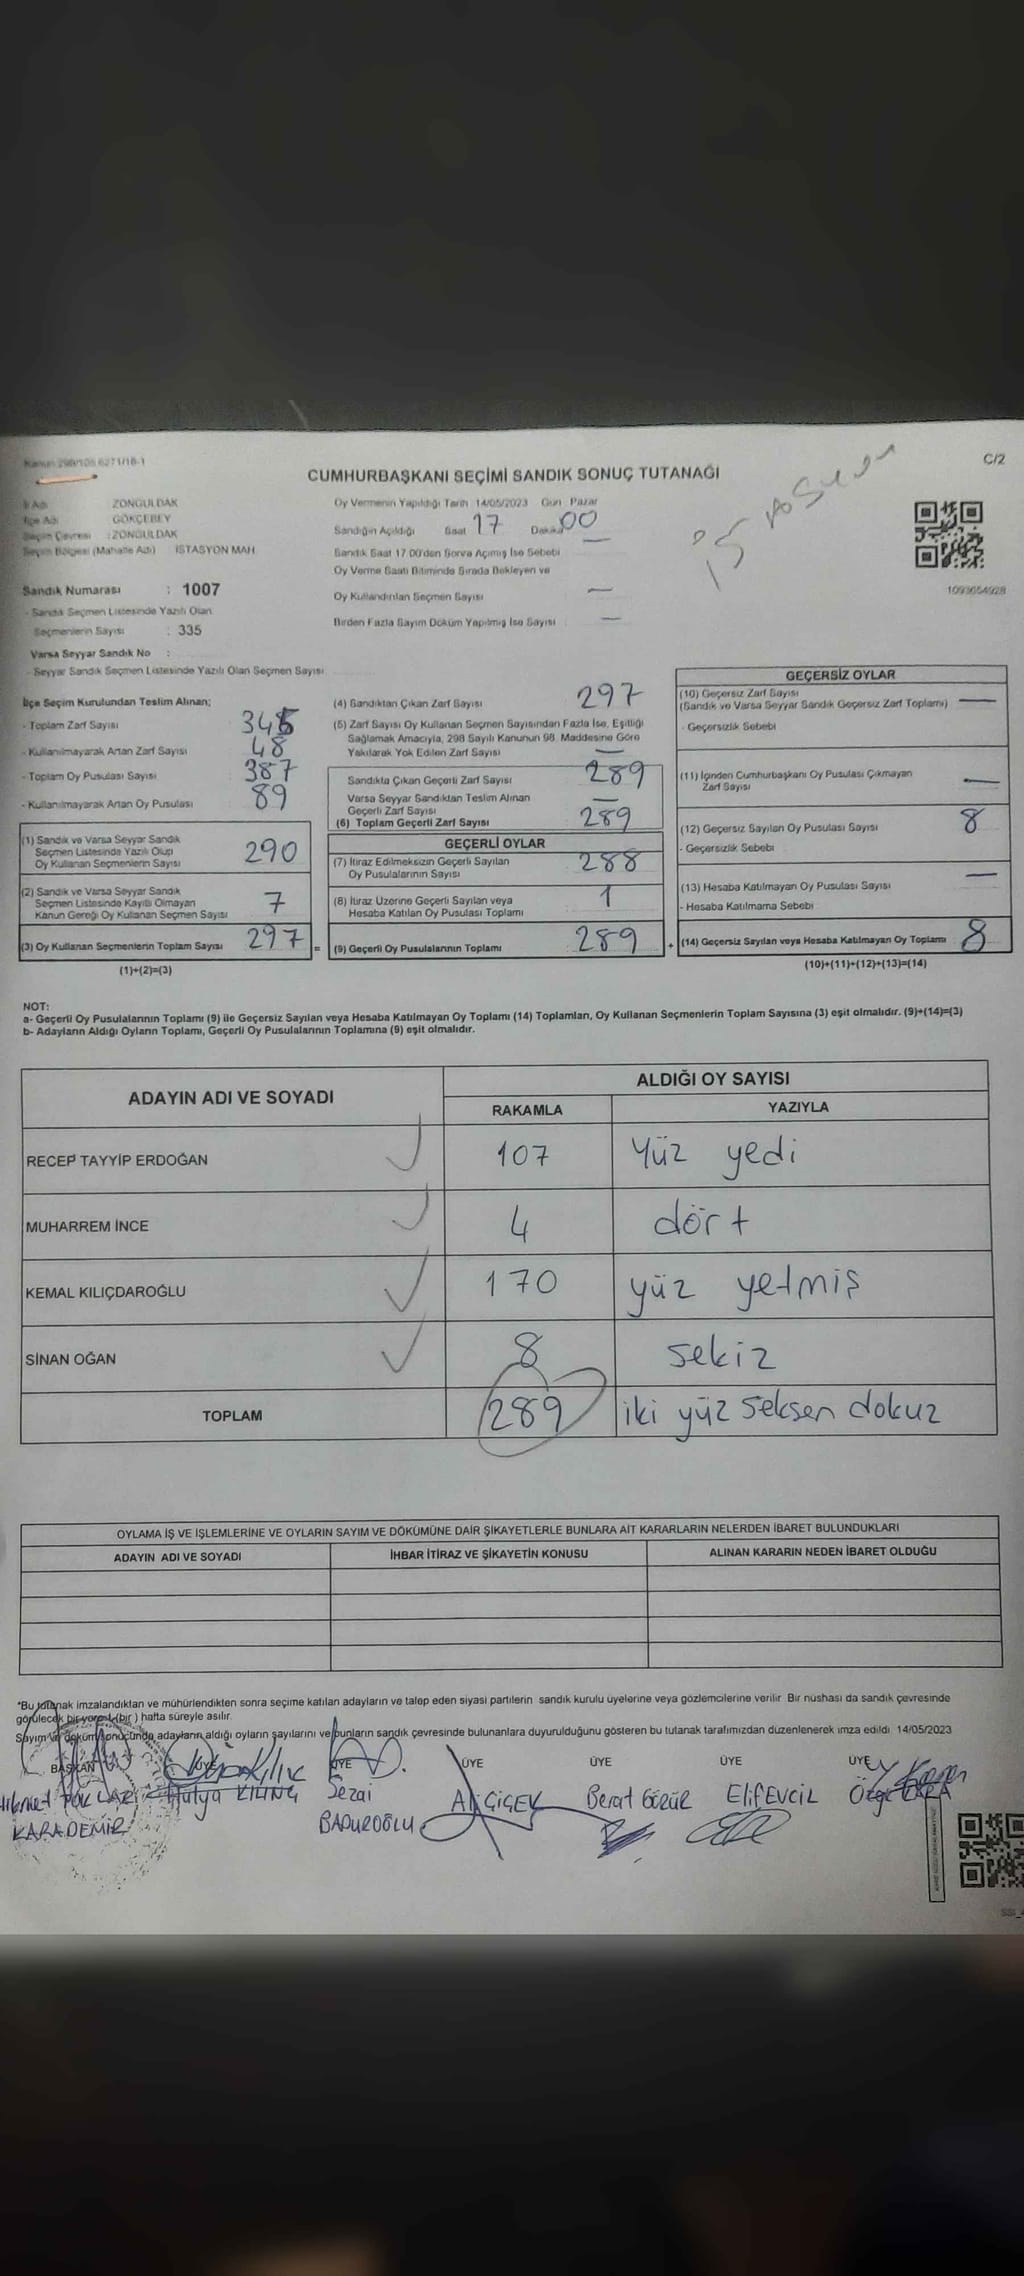 Kanun 298/105 6271/16-1
C/2
CUMHURBAŞKANI SEÇİMİ SANDIK SONUÇ TUTANAĞI
İl Adı ZONGULDAK
İlçe Adı GÖKÇEBEY
Seçim Çevresi : ZONGULDAK
Seçim Bölgesi (Mahalle Adı) İSTASYON MAH
Sandık Numarası : 1007
- Sandık Seçmen Listesinde Yazılı Olan
Seçmenlerin Sayısı : 335
Varsa Seyyar Sandık No :
- Seyyar Sandık Seçmen Listesinde Yazılı Olan Seçmen Sayısı
Oy Vermenin Yapıldığı Tarih 14/05/2023 Gün Pazar
Sandığın Açıldığı Saat 17 Dakika 00
Sandık Saat 17.00'den Sonra Açılmış İse Sebebi —
Oy Verme Saati Bitiminde Sırada Bekleyen ve
Oy Kullandırılan Seçmen Sayısı —
Birden Fazla Sayım Döküm Yapılmış İse Sayısı —
1093654928
İlçe Seçim Kurulundan Teslim Alınan;
- Toplam Zarf Sayısı 345
- Kullanılmayarak Artan Zarf Sayısı 48
- Toplam Oy Pusulası Sayısı 387
- Kullanılmayarak Artan Oy Pusulası 89
(1) Sandık ve Varsa Seyyar Sandık
Seçmen Listesinde Yazılı Olup
Oy Kullanan Seçmenlerin Sayısı 290
(2) Sandık ve Varsa Seyyar Sandık
Seçmen Listesinde Kayıtlı Olmayan
Kanun Gereği Oy Kullanan Seçmen Sayısı 7
(3) Oy Kullanan Seçmenlerin Toplam Sayısı 297 =
(1)+(2)=(3)
(4) Sandıktan Çıkan Zarf Sayısı 297
(5) Zarf Sayısı Oy Kullanan Seçmen Sayısından Fazla İse, Eşitliği
Sağlamak Amacıyla, 298 Sayılı Kanunun 98. Maddesine Göre
Yakılarak Yok Edilen Zarf Sayısı —
Sandıkta Çıkan Geçerli Zarf Sayısı 289
Varsa Seyyar Sandıktan Teslim Alınan
Geçerli Zarf Sayısı —
(6) Toplam Geçerli Zarf Sayısı 289
GEÇERLİ OYLAR
(7) İtiraz Edilmeksizin Geçerli Sayılan
Oy Pusulalarının Sayısı 288
(8) İtiraz Üzerine Geçerli Sayılan veya
Hesaba Katılan Oy Pusulası Toplamı 1
(9) Geçerli Oy Pusulalarının Toplamı 289 +
GEÇERSİZ OYLAR
(10) Geçersiz Zarf Sayısı
(Sandık ve Varsa Seyyar Sandık Geçersiz Zarf Toplamı) —
- Geçersizlik Sebebi
(11) İçinden Cumhurbaşkanı Oy Pusulası Çıkmayan
Zarf Sayısı —
(12) Geçersiz Sayılan Oy Pusulası Sayısı 8
- Geçersizlik Sebebi
(13) Hesaba Katılmayan Oy Pusulası Sayısı —
- Hesaba Katılmama Sebebi
(14) Geçersiz Sayılan veya Hesaba Katılmayan Oy Toplamı 8
(10)+(11)+(12)+(13)=(14)
NOT:
a- Geçerli Oy Pusulalarının Toplamı (9) ile Geçersiz Sayılan veya Hesaba Katılmayan Oy Toplamı (14) Toplamları, Oy Kullanan Seçmenlerin Toplam Sayısına (3) eşit olmalıdır. (9)+(14)=(3)
b- Adayların Aldığı Oyların Toplamı, Geçerli Oy Pusulalarının Toplamına (9) eşit olmalıdır.
ADAYIN ADI VE SOYADI
ALDIĞI OY SAYISI
RAKAMLA YAZIYLA
RECEP TAYYİP ERDOĞAN 107 Yüz yedi
MUHARREM İNCE 4 dört
KEMAL KILIÇDAROĞLU 170 yüz yetmiş
SİNAN OĞAN 8 sekiz
TOPLAM 289 iki yüz seksen dokuz
OYLAMA İŞ VE İŞLEMLERİNE VE OYLARIN SAYIM VE DÖKÜMÜNE DAİR ŞİKAYETLERLE BUNLARA AİT KARARLARIN NELERDEN İBARET BULUNDUKLARI
ADAYIN ADI VE SOYADI İHBAR İTİRAZ VE ŞİKAYETİN KONUSU ALINAN KARARIN NEDEN İBARET OLDUĞU
*Bu tutanak imzalandıktan ve mühürlendikten sonra seçime katılan adayların ve talep eden siyasi partilerin sandık kurulu üyelerine veya gözlemcilerine verilir Bir nüshası da sandık çevresinde
görülecek bir yere 1 (bir) hafta süreyle asılır.
Sayım ve döküm sonucunda adayların aldığı oyların sayılarını ve bunların sandık çevresinde bulunanlara duyurulduğunu gösteren bu tutanak tarafımızdan düzenlenerek imza edildi. 14/05/2023
BAŞKAN ÜYE ÜYE ÜYE ÜYE ÜYE ÜYE
Hülya KILINÇ Sezai Ali ÇİÇEK Berat GÖRÜR Elif EVCİL Özge KARA
KARADEMİR BADUROĞLU